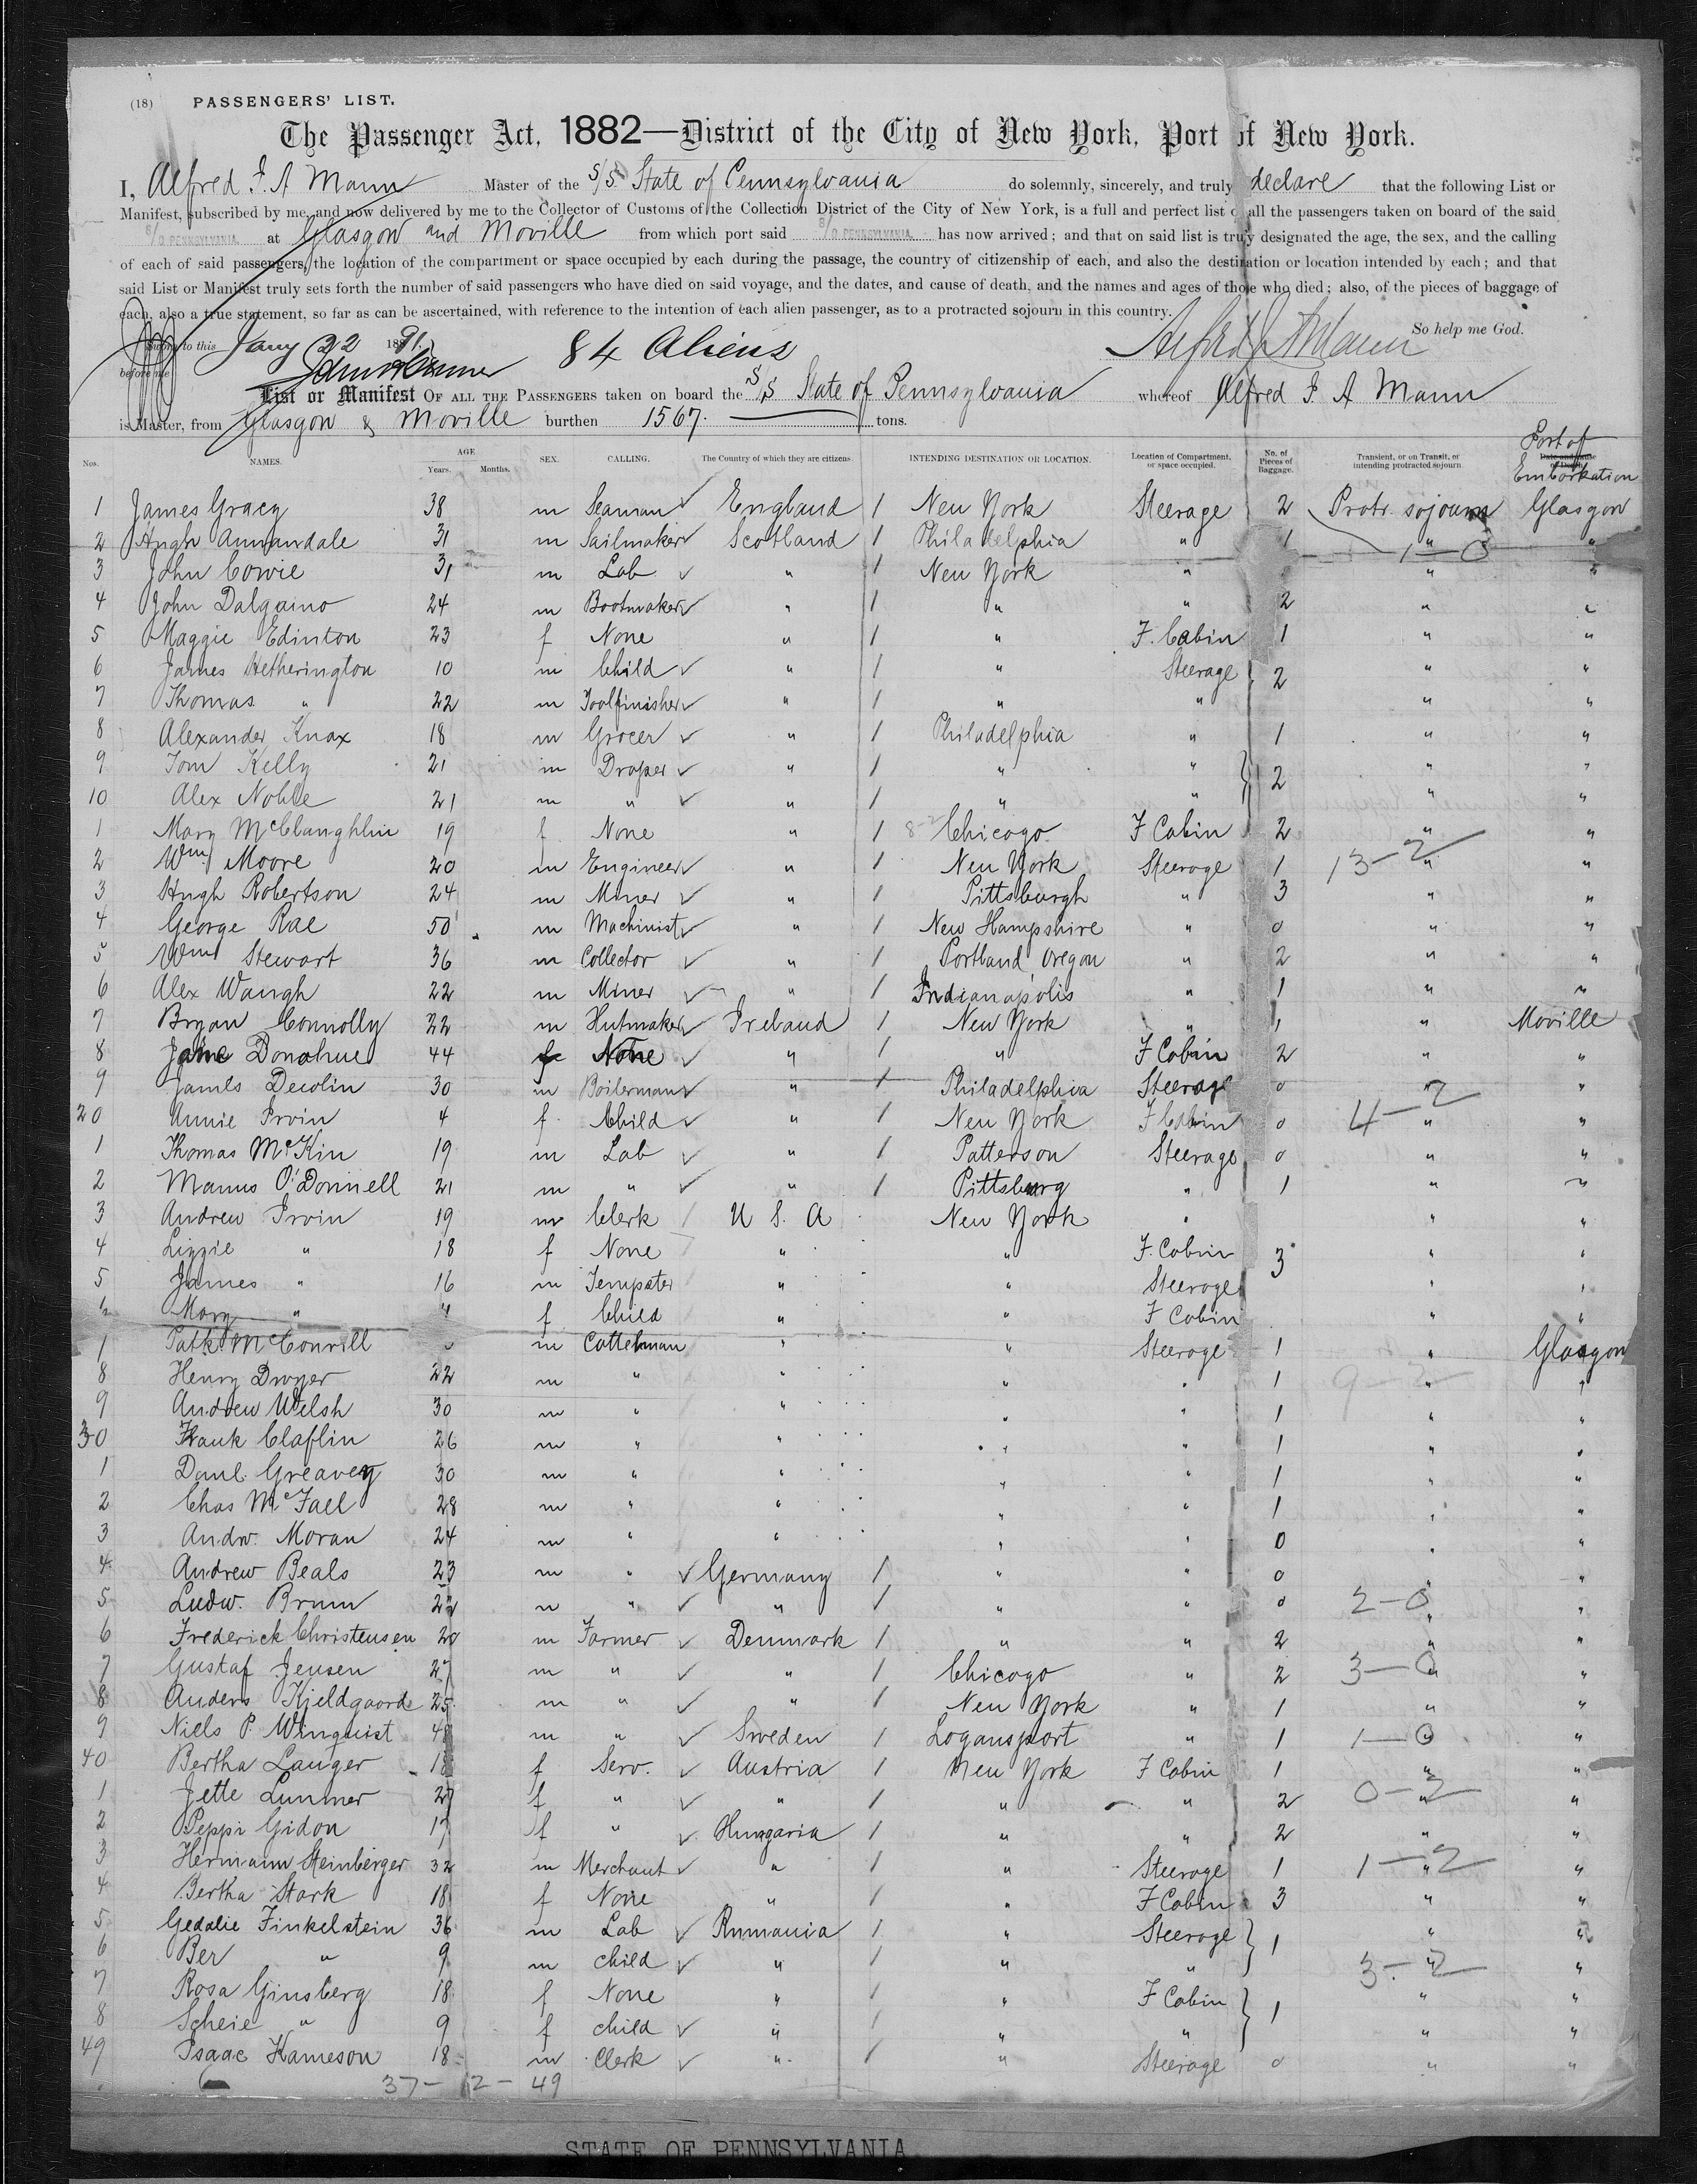 (18) PASSENGERS' LIST.
The Passenger Act, 1882—District of the City of New York, Port of New York.
I, Alfred J. A Mann Master of the S/S. State of Pennsylvania do solemnly, sincerely, and truly declare that the following List or
Manifest, subscribed by me, and now delivered by me to the Collector of Customs of the Collection District of the City of New York, is a full and perfect list of all the passengers taken on board of the said
S/O. PENNSYLVANIA. at Glasgow and Moville from which port said S/O. PENNSYLVANIA. has now arrived; and that on said list is truly designated the age, the sex, and the calling
of each of said passengers, the location of the compartment or space occupied by each during the passage, the country of citizenship of each, and also the destination or location intended by each; and that
said List or Manifest truly sets forth the number of said passengers who have died on said voyage, and the dates, and cause of death, and the names and ages of those who died; also, of the pieces of baggage of
each, also a true statement, so far as can be ascertained, with reference to the intention of each alien passenger, as to a protracted sojourn in this country.
So help me God.
Sworn to this Jany 22 1891. 84 Aliens Alfred J A Mann
before me
List or Manifest OF ALL THE PASSENGERS taken on board the S/S State of Pennsylvania whereof Alfred J A Mann
is Master, from Glasgow & Moville burthen 1567. tons.
Port of Embarkation
Nos. NAMES. AGE Years. Months. SEX. CALLING. The Country of which they are citizens. INTENDING DESTINATION OR LOCATION. Location of Compartment, or space occupied. No. of Pieces of Baggage. Transient, or on Transit, or intending protracted sojourn
1 James Gracy 38 m Seaman England 1 New York Steerage 2 Protr. sojourn Glasgow
2 Hugh Annandale 31 m Sailmaker Scotland 1 Philadelphia " 1 " "
1—0
3 John Cowie 31 m Lab " 1 New York " " "
4 John Dalgaino 24 m Bootmaker " 1 " " 2 " "
5 Maggie Edinton 23 f None " 1 " F. Cabin 1 " "
6 James Hetherington 10 m Child " 1 " Steerage 2 " "
7 Thomas " 22 m Toolfinisher " 1 " " " "
8 Alexander Knax 18 m Grocer " 1 Philadelphia " 1 " "
9 Tom Kelly 21 m Draper " 1 " " 2 " "
10 Alex Noble 21 m " " 1 " " " "
1 Mary McClaughlin 19 f None " 1 8-2 Chicago F Cabin 2 " "
13—2
2 Wm Moore 20 m Engineer " 1 New York Steerage 1 " "
3 Hugh Robertson 24 m Miner " 1 Pittsburgh " 3 " "
4 George Rae 50 m Machinist " 1 New Hampshire " 0 " "
5 Wm Stewart 36 m Collector " 1 Portland, Oregon " 2 " "
6 Alex Waugh 22 m Miner " 1 Indianapolis " 1 " "
7 Bryan Connolly 22 m Hutmaker Ireland 1 New York " 1 " Moville
8 Jane Donohue 44 f None " 1 " F Cabin 2 " "
9 James Decolin 30 m Boilerman " 1 Philadelphia Steerage 0 " "
4—2
20 Annie Irvin 4 f Child " 1 New York F Cabin 0 " "
1 Thomas McKin 19 m Lab " 1 Patterson Steerage 0 " "
2 Manus O'Donnell 21 m " " 1 Pittsburg " 1 " "
3 Andrew Irvin 19 m Clerk U. S. A New York " " "
4 Lizzie " 18 f None " " F. Cabin 3 " "
5 James " 16 m " " Steerage " "
6 Mary " f Child " " F Cabin " "
Patk McConvill m Cattelman " " Steerage 1 " Glasgow
9—2
8 Henry Dwyer 22 m " " " " 1 " "
9 Andrew Welsh 30 m " " " " 1 " "
30 Frank Claflin 26 m " " " " 1 " "
1 Danl. Greavey 30 m " " " " 1 " "
2 Chas McFael 28 m " " " " 1 " "
3 Andw. Moran 24 m " " " " 0 " "
4 Andrew Beals 23 m " Germany 1 " " 0 " "
2—0
5 Ludw. Brum 22 m " " 1 " " 0 " "
6 Frederick Christensen 20 m Farmer Denmark 1 " " 2 " "
7 Gustaf Jensen 27 m " " 1 Chicago " 2 3—0 " "
8 Anders Kjeldgaard 25 m " " 1 New York " 1 " "
9 Niels P. Winquist 48 m " Sweden 1 Logansport " 1 1—0 "
40 Bertha Langer 18 f Serv. Austria 1 New York F Cabin 1 " "
0—2
1 Jette Lunmer 27 f " " 1 " " 2 " "
2 Peppi Gidon 17 f " Hungaria 1 " " 2 " "
3 Hermann Steinberger 32 m Merchant " 1 " Steerage 1 1—2 " "
4 Bertha Stark 18 f None " 1 " F Cabin 3 " "
5 Gedalie Finkelstein 36 m Lab Rumania 1 " Steerage 1 " "
6 Ber " 9 m child " 1 " " " "
3—2
7 Rosa Ginsberg 18 f None " 1 " F Cabin 1 " "
8 Scheie " 9 f child " 1 " " " "
49 Isaac Kameson 18 m Clerk " 1 " Steerage 0 " "
37 — 12 — 49
STATE OF PENNSYLVANIA.